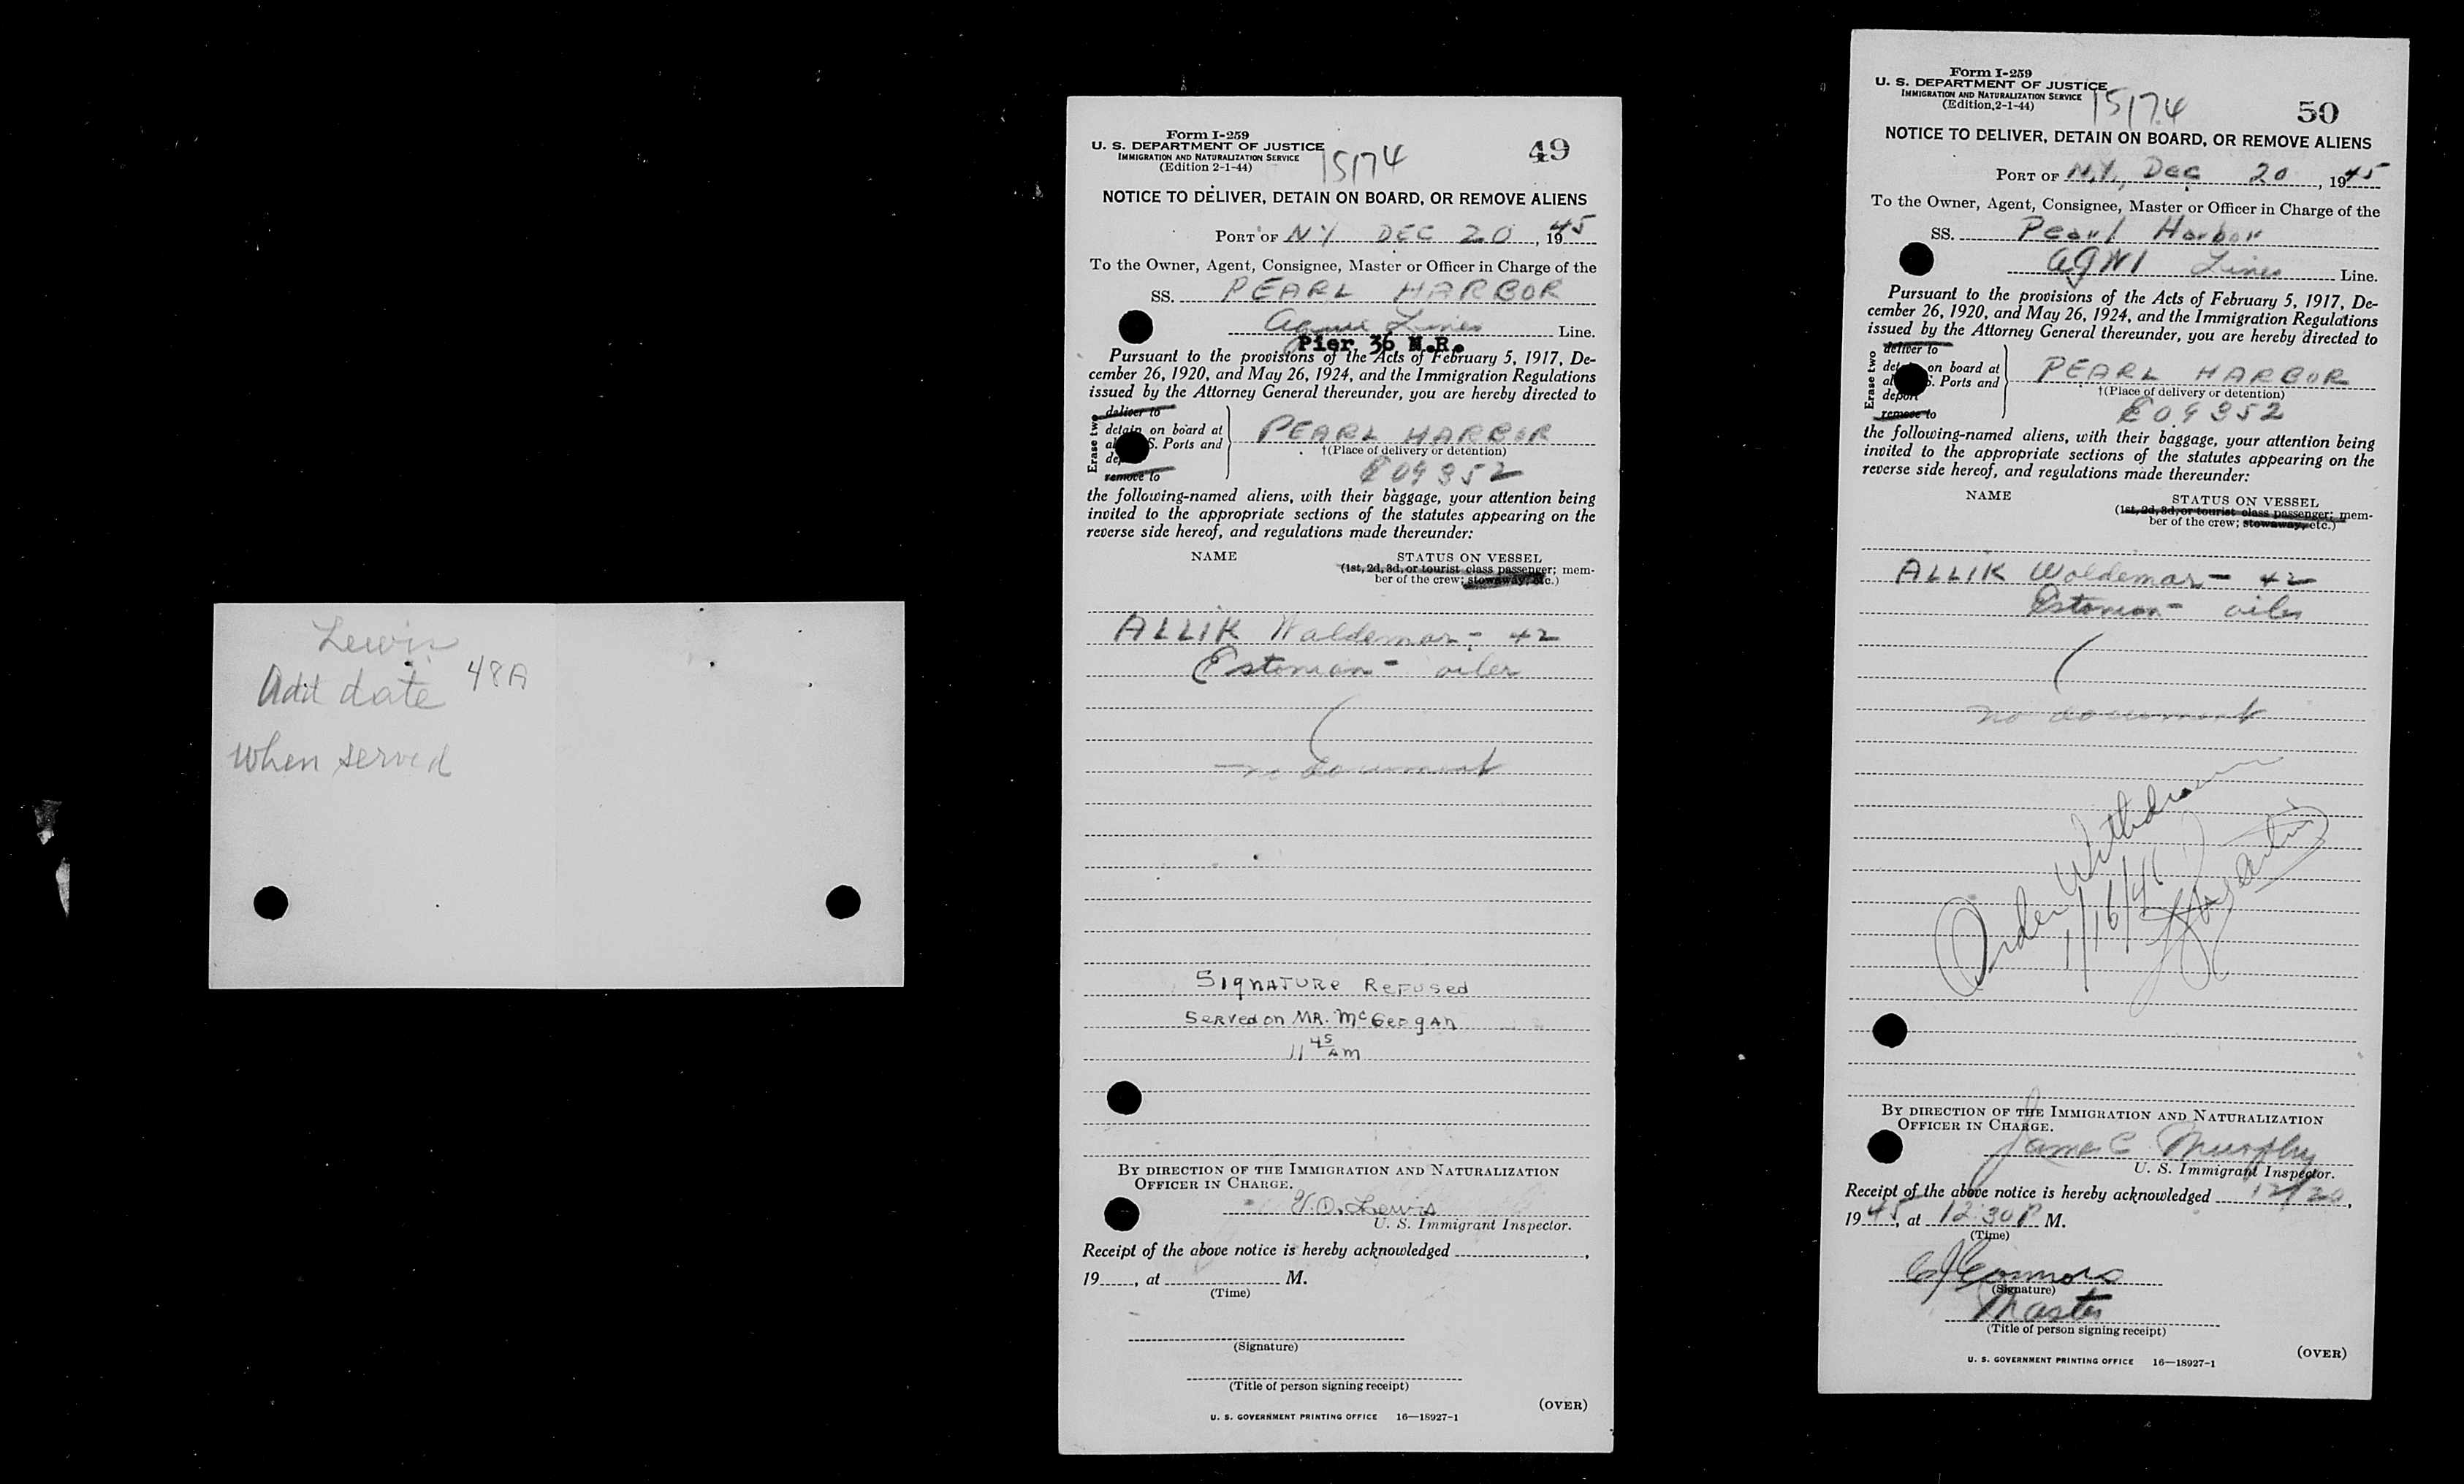 Lewis
Add date 48A
when served
Form I-259
U. S. DEPARTMENT OF JUSTICE
IMMIGRATION AND NATURALIZATION SERVICE
(Edition 2-1-44)
15174
49
NOTICE TO DELIVER, DETAIN ON BOARD, OR REMOVE ALIENS
PORT OF NY DEC 20, 1945
To the Owner, Agent, Consignee, Master or Officer in Charge of the
SS. PEARL HARBOR
Lines Line.
Pier 36 N.R.
Pursuant to the provisions of the Acts of February 5, 1917, De-
cember 26, 1920, and May 26, 1924, and the Immigration Regulations
issued by the Attorney General thereunder, you are hereby directed to
Erase two
deliver to
detain on board at
S. Ports and
remove to
PEARL HARBOR
†(Place of delivery or detention)
E09352
the following-named aliens, with their baggage, your attention being
invited to the appropriate sections of the statutes appearing on the
reverse side hereof, and regulations made thereunder:
NAME STATUS ON VESSEL
(1st, 2d, 3d, or tourist class passenger; mem-
ber of the crew; stowaway, etc.)
ALLIK Waldemar - 42
Estonian - oiler
(
no document
SIGNATURE REFUSED
Served on MR. McGeogan
11 45 AM
BY DIRECTION OF THE IMMIGRATION AND NATURALIZATION
OFFICER IN CHARGE.
Lewis
U. S. Immigrant Inspector.
Receipt of the above notice is hereby acknowledged ,
19 , at M.
(Time)
(Signature)
(Title of person signing receipt)
(OVER)
U. S. GOVERNMENT PRINTING OFFICE 16—18927-1
Form I-259
U. S. DEPARTMENT OF JUSTICE
IMMIGRATION AND NATURALIZATION SERVICE
(Edition 2-1-44)
15174
50
NOTICE TO DELIVER, DETAIN ON BOARD, OR REMOVE ALIENS
PORT OF N.Y., Dec 20, 1945
To the Owner, Agent, Consignee, Master or Officer in Charge of the
SS. Pearl Harbor
AGWI Lines Line.
Pursuant to the provisions of the Acts of February 5, 1917, De-
cember 26, 1920, and May 26, 1924, and the Immigration Regulations
issued by the Attorney General thereunder, you are hereby directed to
Erase two
deliver to
on board at
S. Ports and
deport
remove to
PEARL HARBOR
†(Place of delivery or detention)
E09352
the following-named aliens, with their baggage, your attention being
invited to the appropriate sections of the statutes appearing on the
reverse side hereof, and regulations made thereunder:
NAME STATUS ON VESSEL
(1st, 2d, 3d, or tourist class passenger; mem-
ber of the crew; stowaway, etc.)
ALLIK Woldemar - 42
Estonian - oiler
(
no document
Order Withdrawn
1/16/46
BY DIRECTION OF THE IMMIGRATION AND NATURALIZATION
OFFICER IN CHARGE.
James C Murphy
U. S. Immigrant Inspector.
Receipt of the above notice is hereby acknowledged 12/20,
1945, at 12:30 P M.
(Time)
Connors
(Signature)
Master
(Title of person signing receipt)
(OVER)
U. S. GOVERNMENT PRINTING OFFICE 16—18927-1